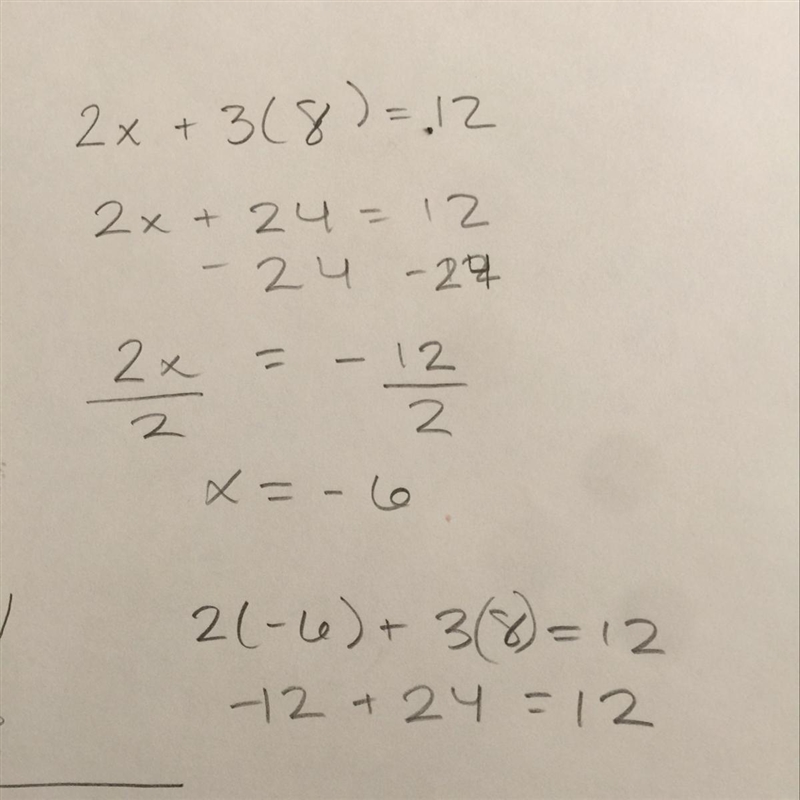 2x + 3(8) = .12
2x + 24 = 12
- 24 -24
2x = - 12
2 2
x = - 6
2(-6) + 3(8) = 12
-12 + 24 = 12